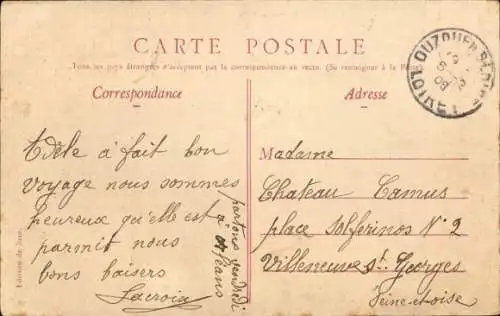 CARTE POSTALE
Tous les pays étrangers n'acceptent pas la correspondance au recto. (Se renseigner à la Poste)
Correspondance
Adresse
Adèle à fait bon
voyage nous sommes
heureux qu'elle est
parmit nous
bons baisers
Lacroix
partons vendredi
à Orléans
Madame
Chateau Camus
place Solferinos N° 2
Villeneuve St. Georges
Seine-et-oise
LOIRET